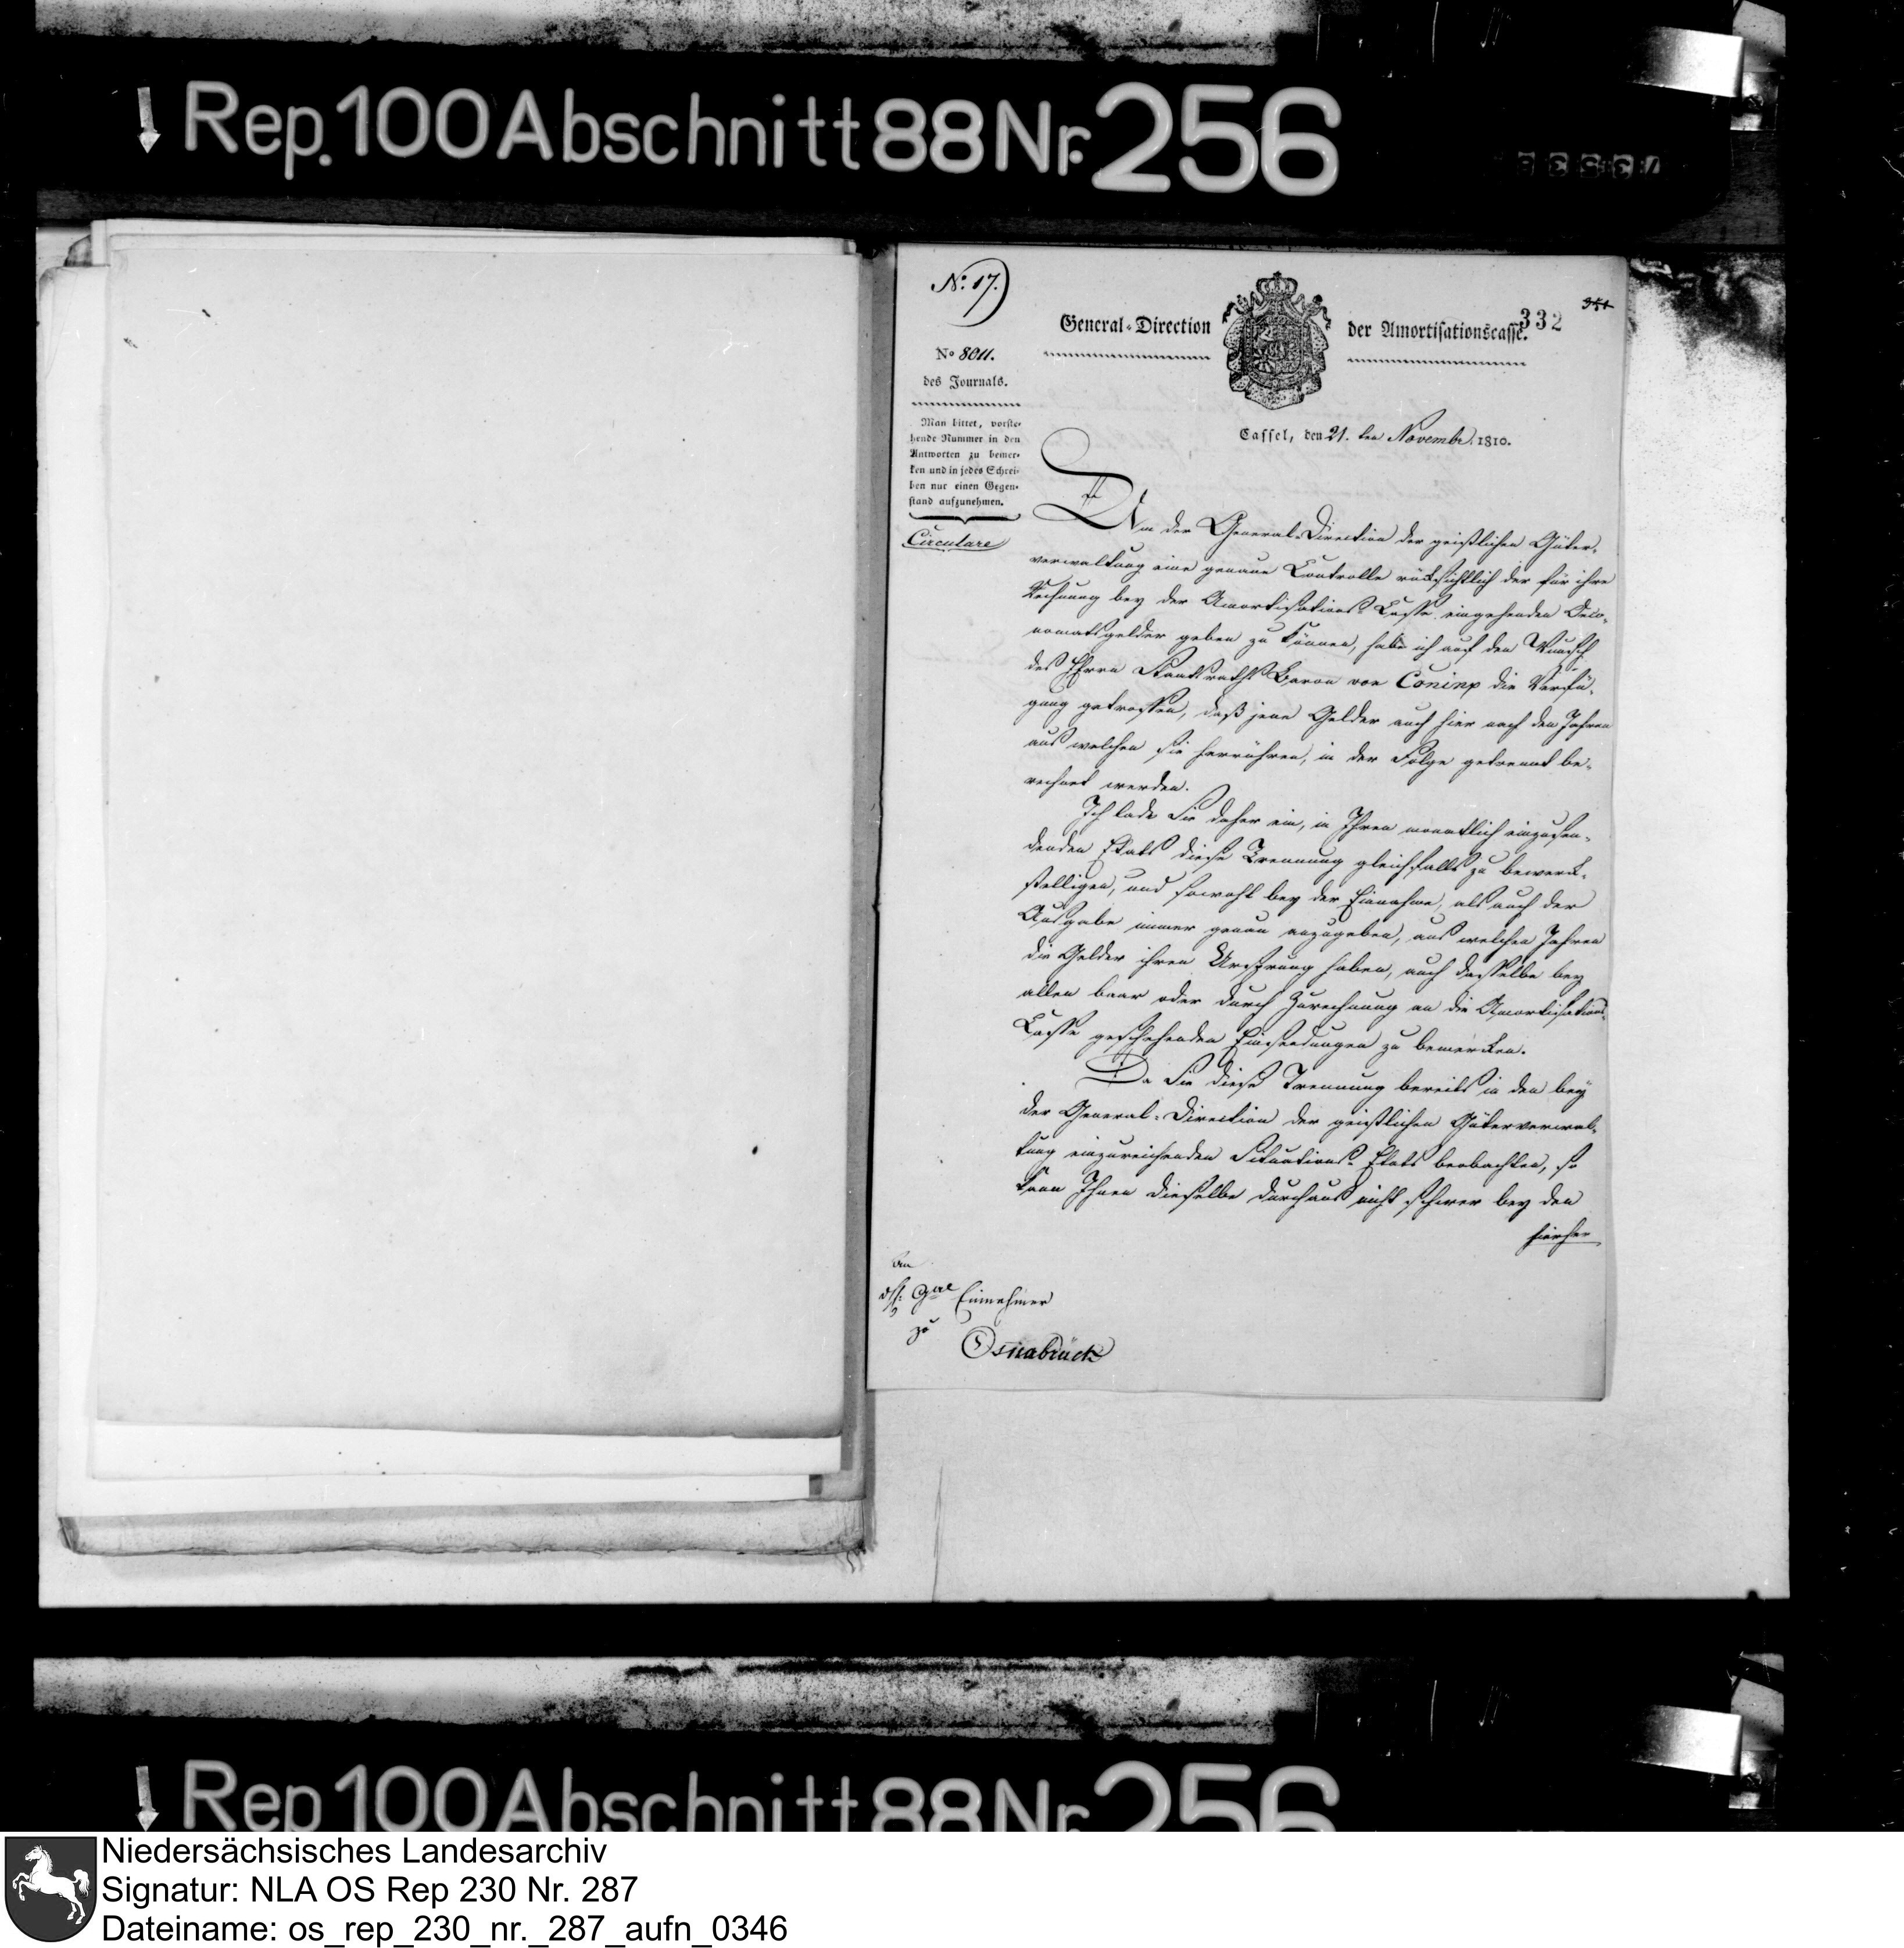 Rep. 100 Abschnitt 88 Nr. 256
73538
No: 17.)
General-Direction der Amortisationscasse.
332
351
No 8011.
des Journals.
Man bittet, vorste-
hende Nummer in den
Antworten zu bemer-
ken und in jedes Schrei-
ben nur einen Gegen-
stand aufzunehmen.
Circulare
Cassel, den 21. ten Novembr. 1810.
Um der General-Direction der geistlichen Güter-
verwaltung eine genaue Controlle rücksichtlich der für ihre
Rechnung bey der Amortisations-Casse eingehenden Oeco-
nomatsgelder geben zu können, habe ich auf den Wunsch
des Herrn Staatsraths Baron von Coninx die Verfü-
gung getroffen, daß jene Gelder auch hier nach den Jahren
aus welchen sie herrühren, in der Folge getrennt be-
rechnet werden.
Ich lade Sie daher ein, in Ihren monatlich einzusen-
denden Etats diese Trennung gleichfalls zu bewerk-
stelligen, und sowohl bey der Einnahme, als auch der
Ausgabe immer genau anzugeben, aus welchen Jahren
die Gelder ihren Ursprung haben, auch dasselbe bey
allen baar oder durch Zurechnung an die Amortisations-
Casse geschehenden Einsendungen zu bemerken.
Da Sie diese Trennung bereits in den bey
der General-Direction der geistlichen Güterverwal-
tung einzureichenden Situations-Etats beobachten, so
kann Ihnen dieselbe durchaus nicht schwer bey den
hierher
An
Gral Einnehmer
zu
Osnabrück
Rep 100 Abschnitt 88 Nr. 256
Niedersächsisches Landesarchiv
Signatur: NLA OS Rep 230 Nr. 287
Dateiname: os_rep_230_nr._287_aufn_0346